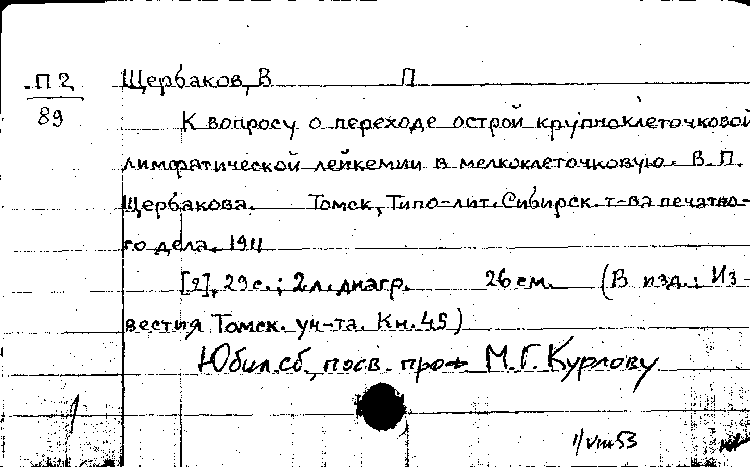 П2
89
Щербаков, В П
К вопросу о переходе острой крупноклеточковой
лимфатической лейкемии в мелкоклеточковую. В.П.
Щербакова. Томск, Типо-лит. Сибирск. т-ва печатно-
го дела. 1911
[2], 29 с.; 2 л. диагр. 26 см. (В изд.: Из-
вестия Томск. ун-та. Кн. 45)
Юбил. сб., посв. про М.Г. Курлову
1/VIII 53